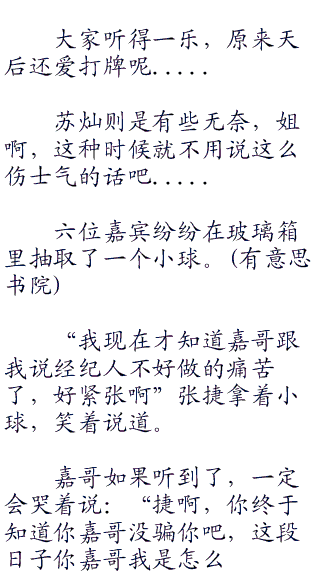 大家听得一乐，原来天
后还爱打牌呢.....
苏灿则是有些无奈，姐
啊，这种时候就不用说这么
伤士气的话吧.....
六位嘉宾纷纷在玻璃箱
里抽取了一个小球。(有意思
书院)
“我现在才知道嘉哥跟
我说经纪人不好做的痛苦
了，好紧张啊”张捷拿着小
球，笑着说道。
嘉哥如果听到了，一定
会哭着说：“捷啊，你终于
知道你嘉哥没骗你吧，这段
日子你嘉哥我是怎么